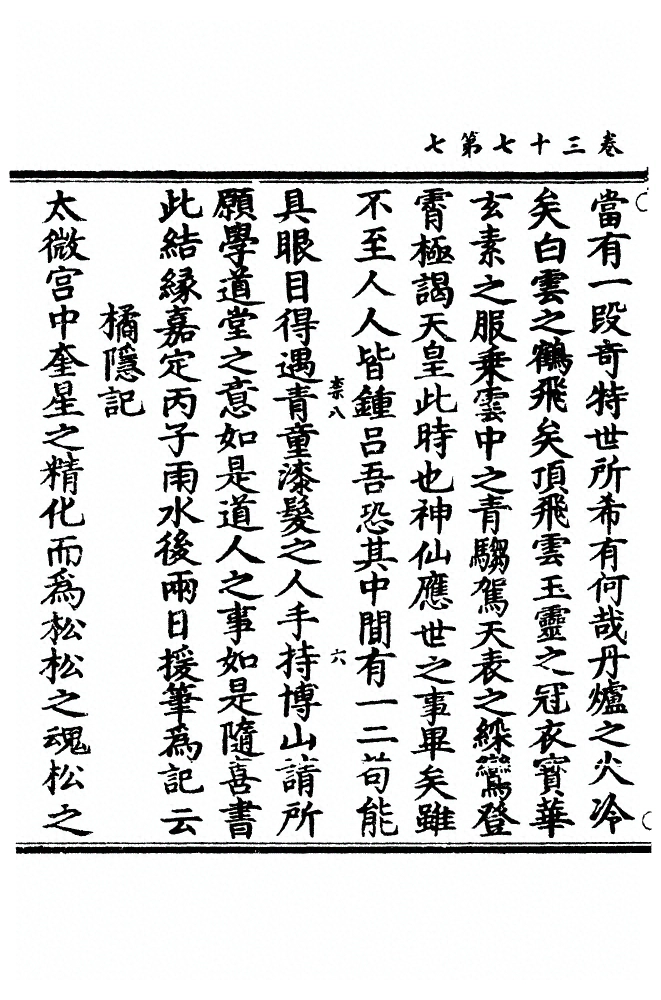 卷三十七第七
當有一段奇特世所希有何哉丹爐之火冷
矣白雲之鶴飛矣頂飛雲玉靈之冠衣寶華
玄素之服乘雲中之青騶駕天表之綵鸞登
霄極謁天皇此時也神仙應世之事畢矣雖
不至人人皆鍾呂吾恐其中間有一二苟能
柰八
六
具眼目得遇青童漆髮之人手持博山請所
願學道堂之意如是道人之事如是隨喜書
此結緣嘉定丙子雨水後兩日援筆爲記云
橘隱記
太微宮中奎星之精化而爲松松之魂松之